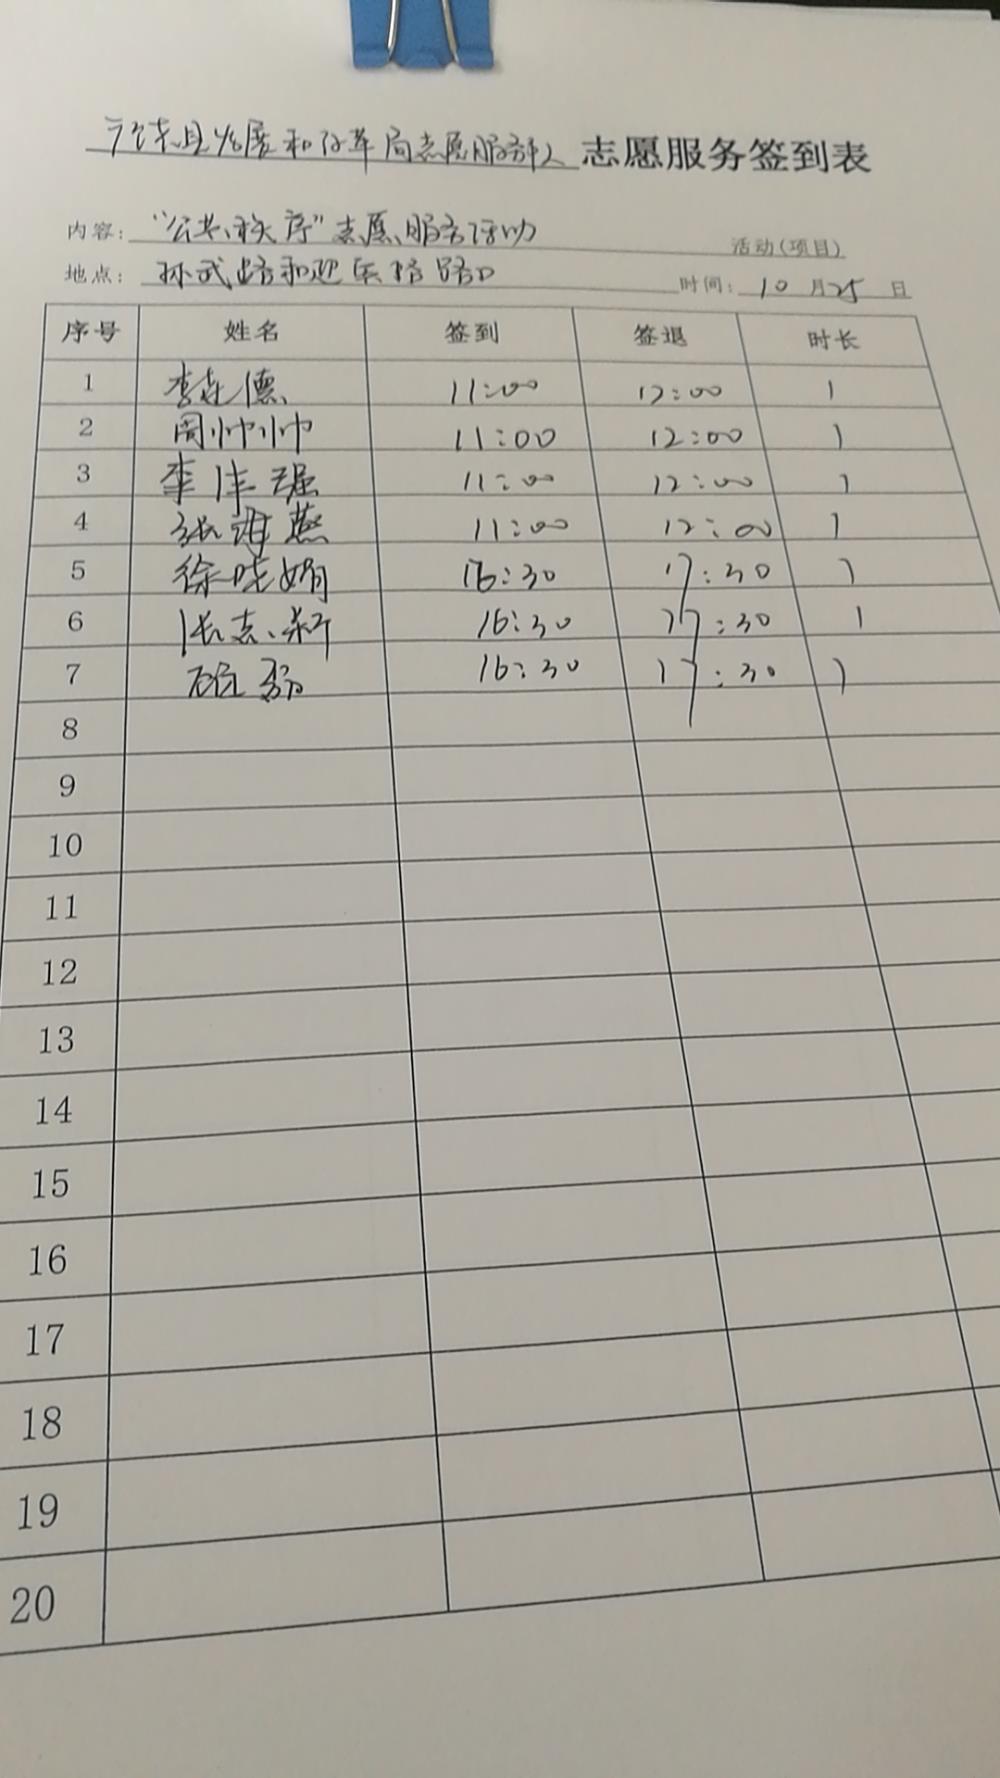 广饶县发展和改革局志愿服务队 志愿服务签到表
内容：“公共秩序”志愿服务活动 活动(项目)
地点：孙武路和迎宾路路口 时间：10月25日
序号 姓名 签到 签退 时长
1 李 德 11:00 12:00 1
2 周帅帅 11:00 12:00 1
3 李 强 11:00 12:00 1
4 张海燕 11:00 12:00 1
5 徐晓娟 16:30 17:30 1
6 张志新 16:30 17:30 1
7 16:30 17:30 1
8
9
10
11
12
13
14
15
16
17
18
19
20